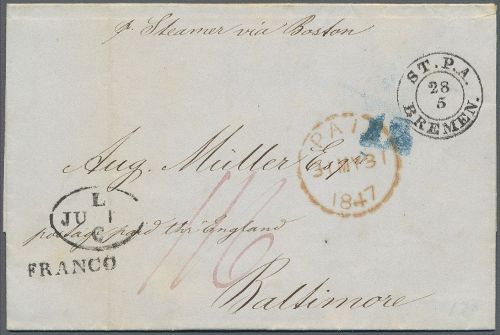 pr Steamer via Boston
ST. P. A.
28
5
BREMEN.
PAID
31 MY 31
1847
Aug. Müller Esqre
L
JU 1
C
postage paid thro' England
1/6
FRANCO
Baltimore